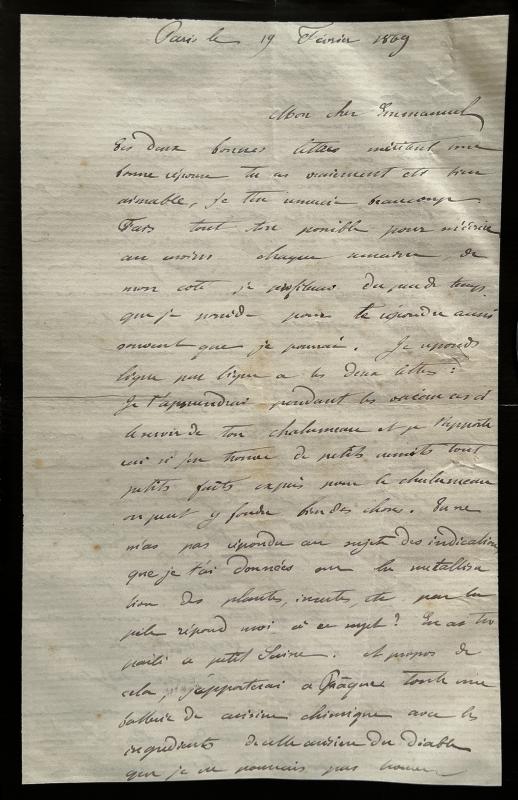 Paris le 19 Février 1869
Mon cher Emmanuel
Tes deux bonnes lettres méritent une
bonne réponse tu as vraiment été bien
aimable, je t'en remercie beaucoup
Fais tout ton possible pour m'écrire
au moins chaque semaine, de
mon coté je profiterai du peu de temps
que je possède pour te répondre aussi
souvent que je pourrai. Je réponds
ligne par ligne a tes deux lettres :
Je t'apprendrai pendant les vacances ci
le servir de ton chalumeau et je t'apporte
rai si j'en trouve de petits creusets tout
petits faits exprès pour le chalumeau
on peut y fondre bien des choses. Tu ne
m'as pas répondu au sujet des indications
que je t'ai données sur la métallisa
tion des plantes, insectes, etc par la
pile répond moi à ce sujet ? En as tu
parlé a petit ? a propos de
cela, j'apporterai a Pâques toute une
batterie de cuisine chimique avec les
ingrédients de cette cuisine du diable
que je ne pourrais pas trouver